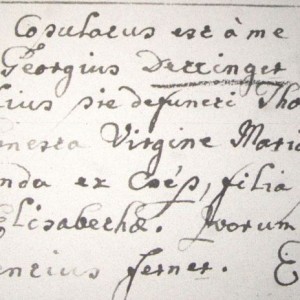 Copulatus est à me
Georgius Derringer
lius pie defuncti Tho
onesta Virgine Maria
nda ex Coëp, filia
Elisabethæ. Quorum
entius ferner. E